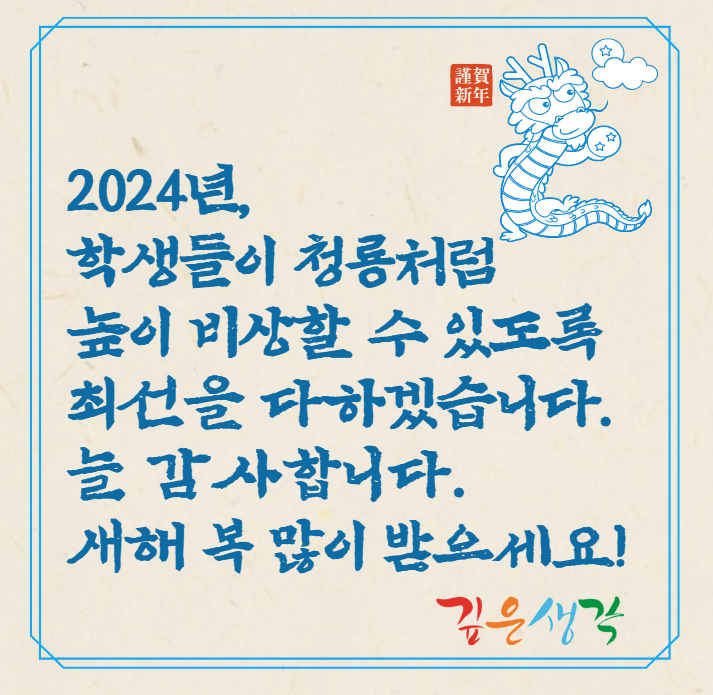 謹賀
新年
2024년,
학생들이 청룡처럼
높이 비상할 수 있도록
최선을 다하겠습니다.
늘 감사합니다.
새해 복 많이 받으세요!
깊은생각